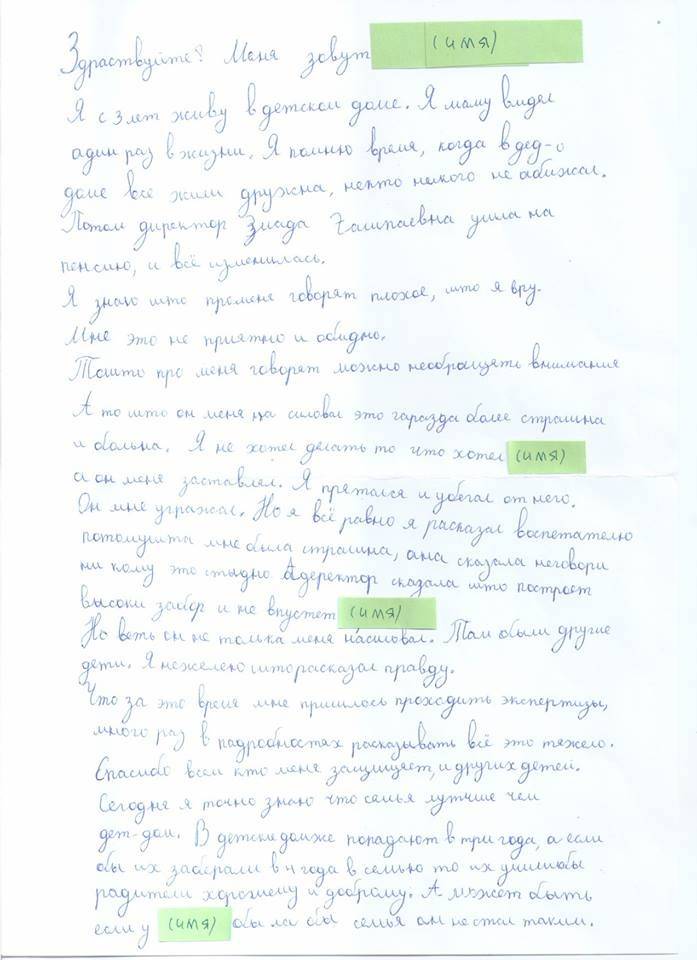 Здраствуйте! Меня зовут (имя)
Я с 3 лет живу в детском доме. Я маму видел
адин раз в жизни. Я помню время, когда в дед-о
доме все жили дружна, некто некого не абижал.
Потом директор Зиада ушла на
пенсию, и всё изменилась.
Я знаю што променя говорят плохое, што я вру.
Мне это не приятно и обидно.
Тошто про меня говорят можно необращять внимания
А то што он меня на силовал это гаразда более страшна
и больна. Я не хотел делать то что хотел (имя)
а он меня заставлял. Я прятался и убегал от него.
Он мне угражал. Но я всё равно я расказал воспетателю
потомушта мне была страшна, ана сказала неговори
ни кому это стыдно Адеректор сказала што построет
высоки забор и не впустет (имя)
Но веть он не толька меня насиловал. Там были другие
дети. Я нежелею шторасказал правду.
Что за это время мне пришлось проходить экспертизы,
много раз в падробностях расказывать всё это тяжело.
Спасибо всем кто меня защищяет, и других детей.
Сегодня я точно знаю что семья лутчше чем
дет-дом. В детскедомже попадают в три года, а если
бы их заберали в 4 года в семью то их училибы
радители хорошему и доброму. А может быть
если у (имя) была бы семья он не стал таким.